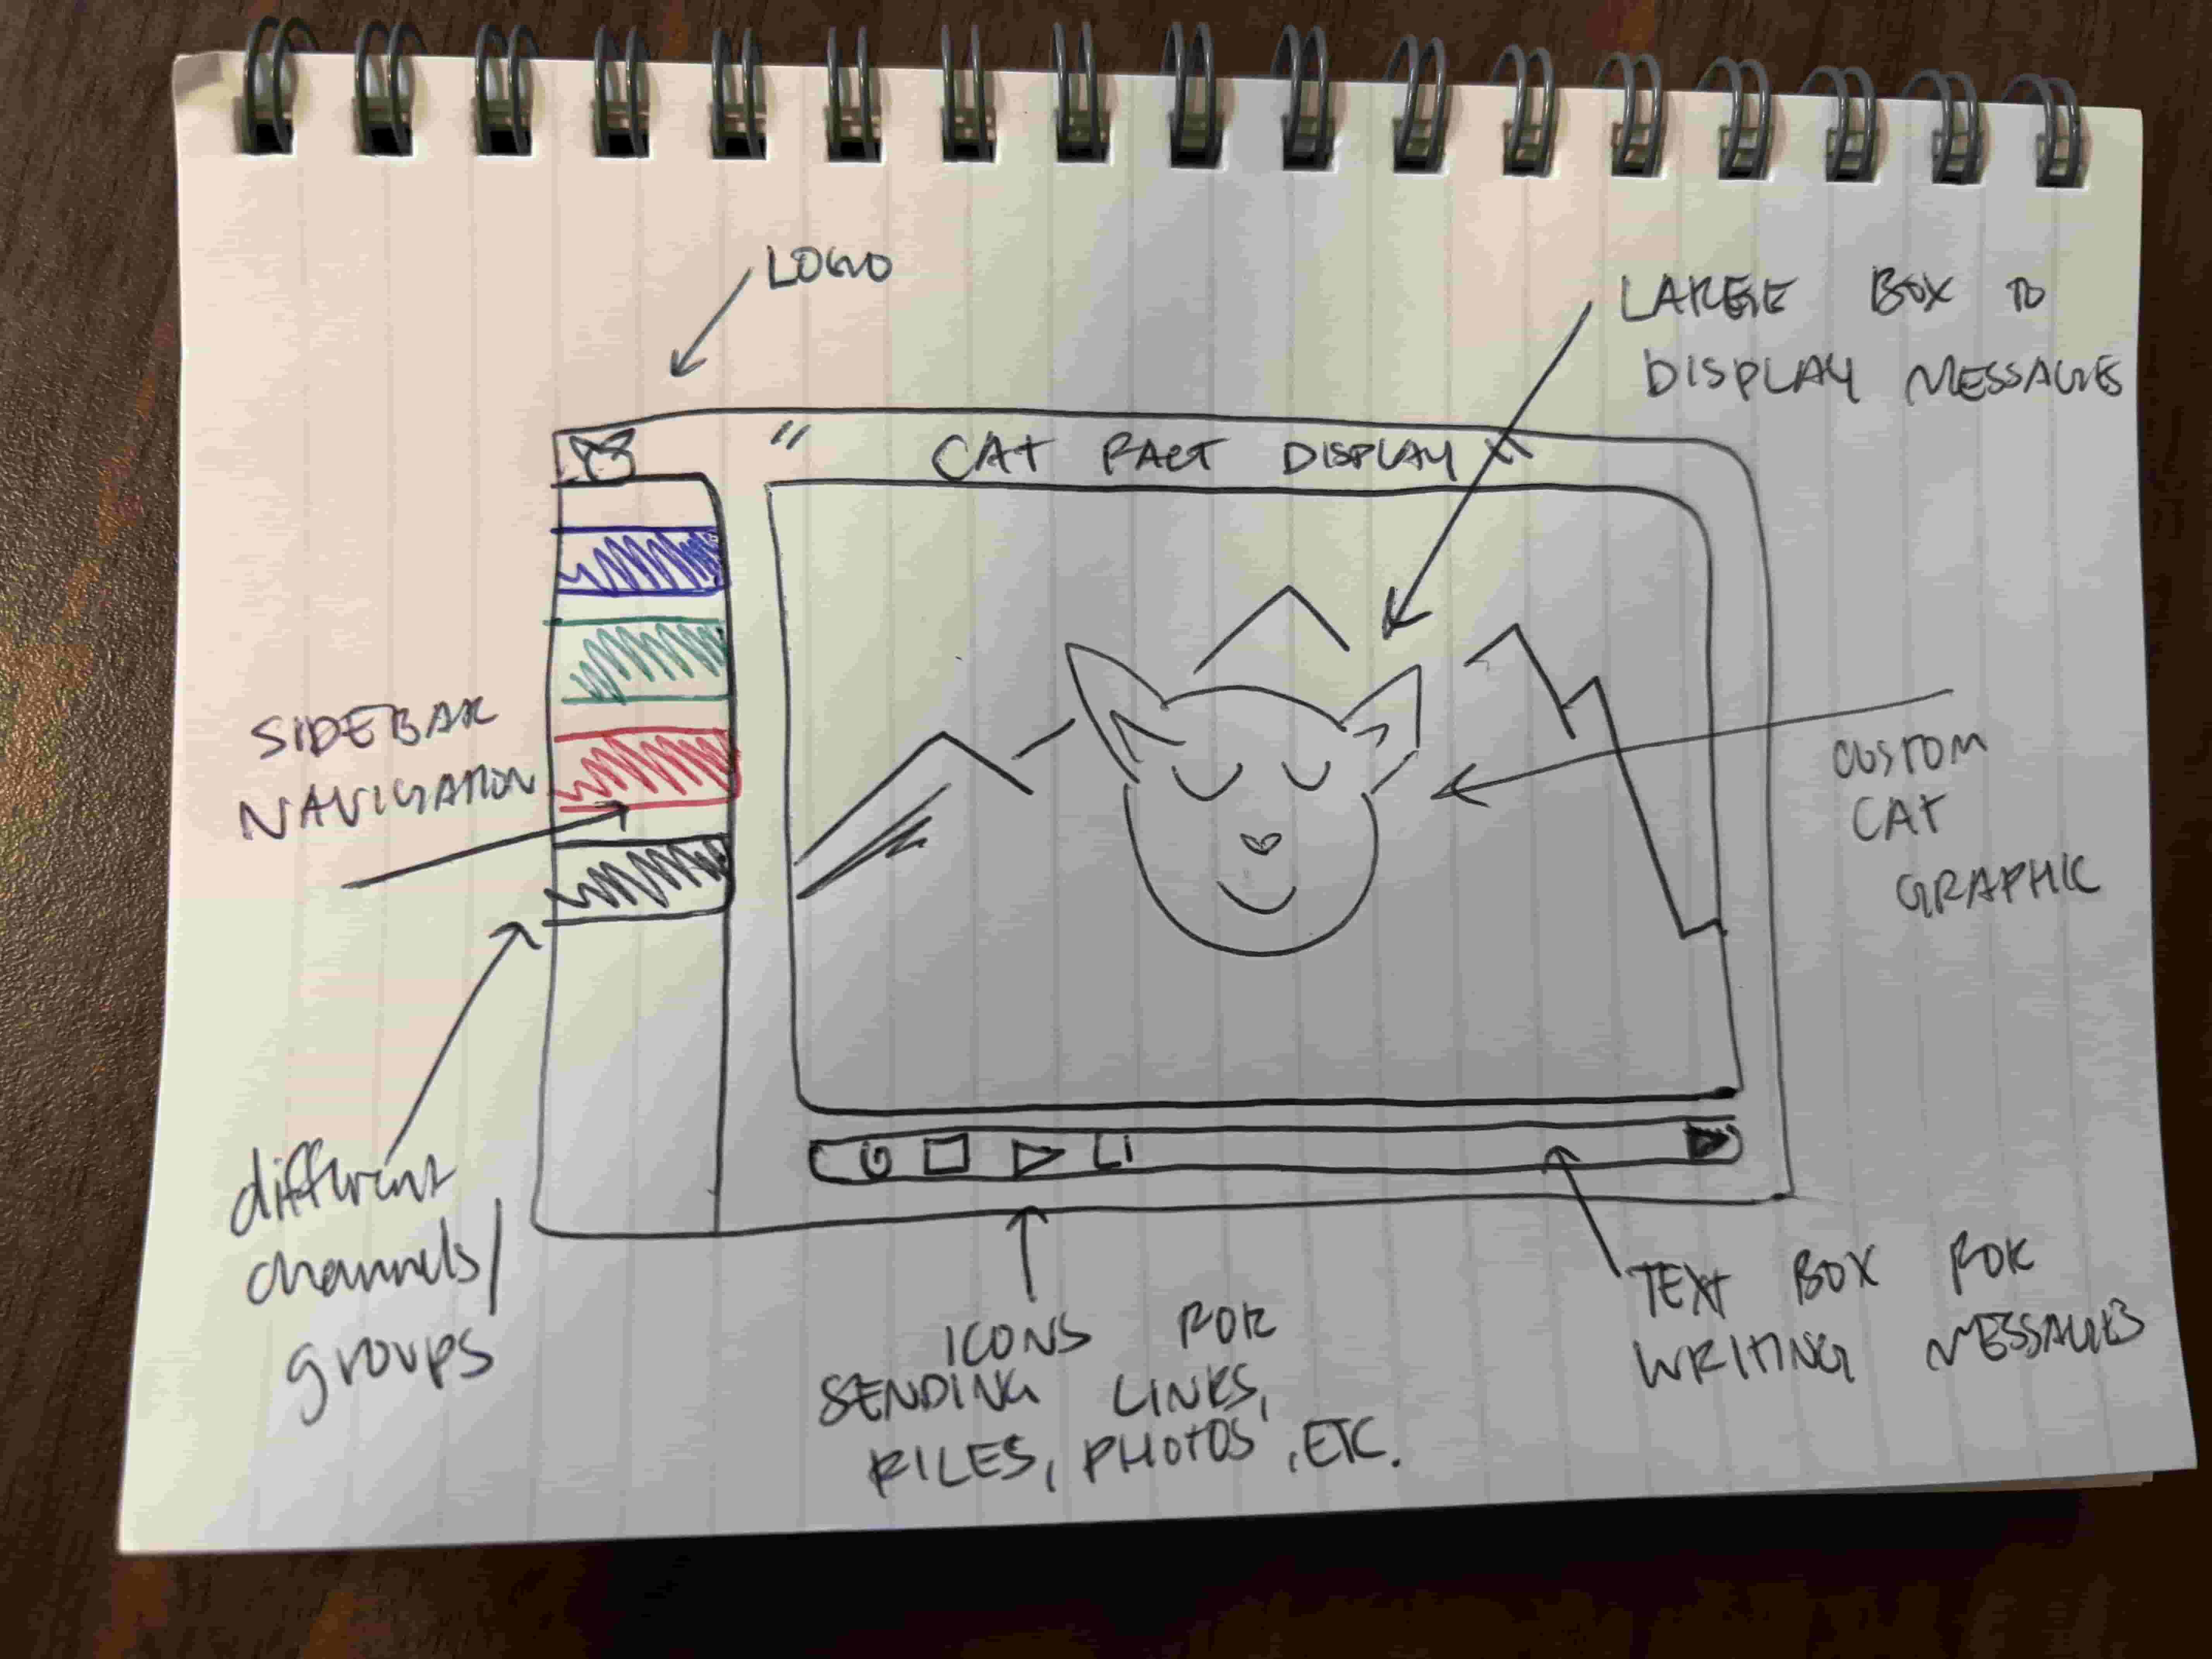 LOGO
LARGE BOX TO
DISPLAY MESSAGES
" CAT FACT DISPLAY "
SIDEBAR
NAVIGATION
CUSTOM
CAT
GRAPHIC
different
channels/
groups
ICONS FOR
SENDING LINKS,
FILES, PHOTOS, ETC.
TEXT BOX FOR
WRITING MESSAGES